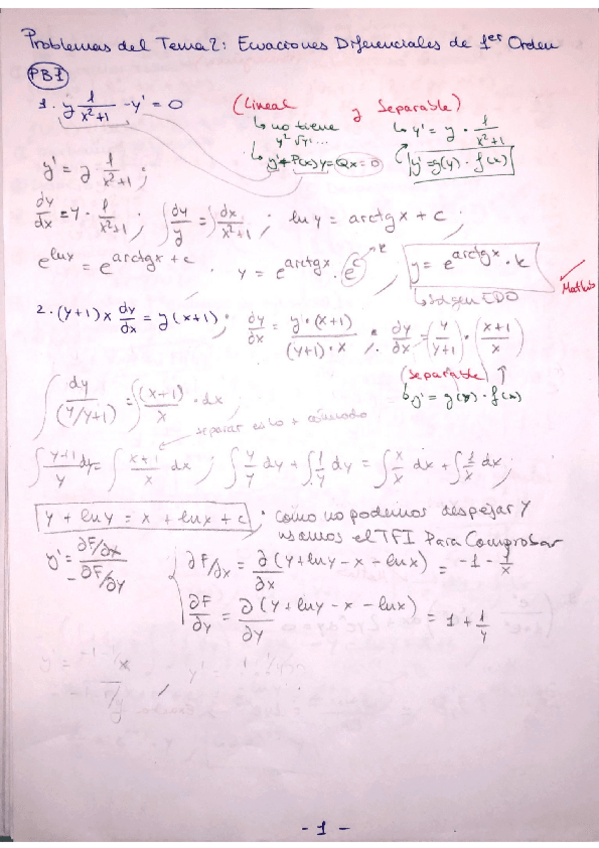 Problemas del Tema 2: Ecuaciones Diferenciales de 1er Orden
PB1
1. y 1/(x²+1) - y' = 0 (Lineal y Separable)
↳ no tiene y² √y...
↳ y' = y · 1/(x²+1)
↳ y' + P(x)y = Qx = 0
y' = g(y) · f(x)
y' = y · 1/(x²+1) ;
dy/dx = y · 1/(x²+1) ; ∫ dy/y = ∫ dx/(x²+1) ; ln y = arctgx + c ;
e^lnx = e^(arctgx + c) . y = e^arctgx · e^c → k y = e^arctgx · k
↳ Sol gen EDO
2. (y+1) x dy/dx = y(x+1) ; dy/dx = y·(x+1)/((y+1)·x) ; dy/dx = (y/(y+1)) · ((x+1)/x)
(separable) ↑
↳ y' = g(y) · f(x)
∫ dy/(y/y+1) = ∫ (x+1)/x · dx
separar es lo + cómodo
∫ (y+1)/y dy = ∫ (x+1)/x dx ; ∫ y/y dy + ∫ 1/y dy = ∫ x/x dx + ∫ 1/x dx ;
y + ln y = x + ln x + c . Como no podemos despejar y
usamos el TFI Para Comprobar
y' = - (∂F/∂x)/(∂F/∂y)
∂F/∂x = ∂(y + ln y - x - ln x)/∂x = -1 - 1/x
∂F/∂y = ∂(y + ln y - x - ln x)/∂y = 1 + 1/y
- 1 -